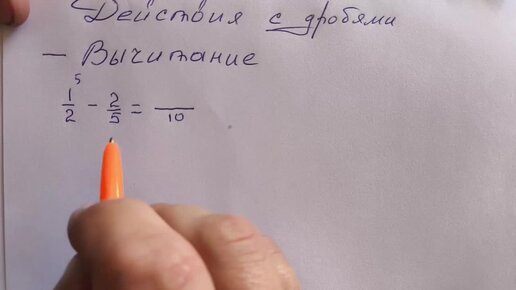 Действия с дробями
— Вычитание
1/2⁵ - 2/5 = /10